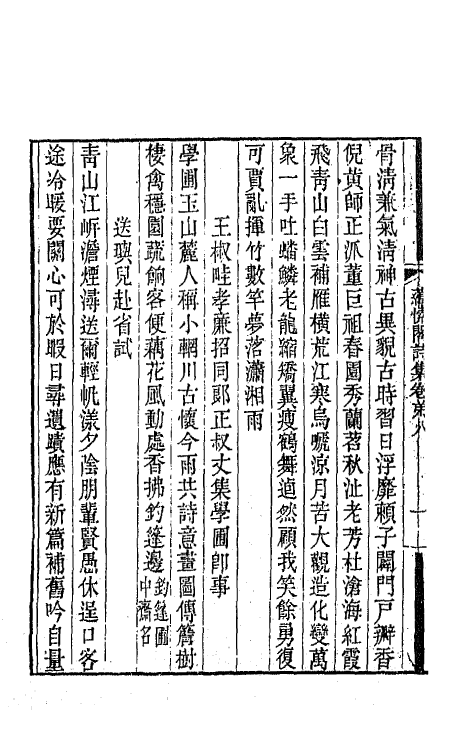 蕴愫閣詩集卷第八
骨淸兼氣淸神古異貌古時習日浮靡賴子闢門戸瓣香
倪黄師正派董巨祖春園秀蘭苕秋沚老芳杜滄海紅霞
飛靑山白雲補雁橫荒江寒烏嗁涼月苦大觀造化變萬
象一手吐蟠鱗老龍縮矯翼瘦鶴舞逌然顧我笑餘勇復
可賈亂揮竹數竿夢落瀟湘雨
王椒畦孝廉招同郞正叔丈集學圃卽事
學圃玉山麓人稱小輞川古懷今雨共詩意畫圖傳簷樹
棲禽穩園蔬餉客便藕花風動處香拂釣篷邊釣篷圃中齋名
送璵兒赴省試
靑山江岍澹煙潯送爾輕帆漾夕陰朋輩賢愚休逞口客
途冷暖要關心可於暇日尋遺蹟應有新篇補舊吟自量